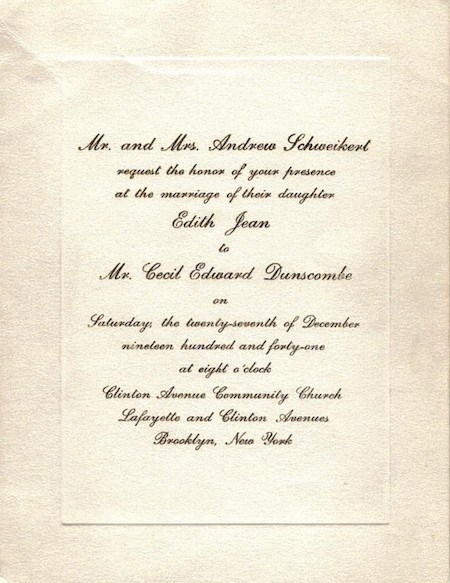 Mr. and Mrs. Andrew Schweikert
request the honor of your presence
at the marriage of their daughter
Edith Jean
to
Mr. Cecil Edward Dunscombe
on
Saturday, the twenty-seventh of December
nineteen hundred and forty-one
at eight o'clock
Clinton Avenue Community Church
Lafayette and Clinton Avenues
Brooklyn, New York